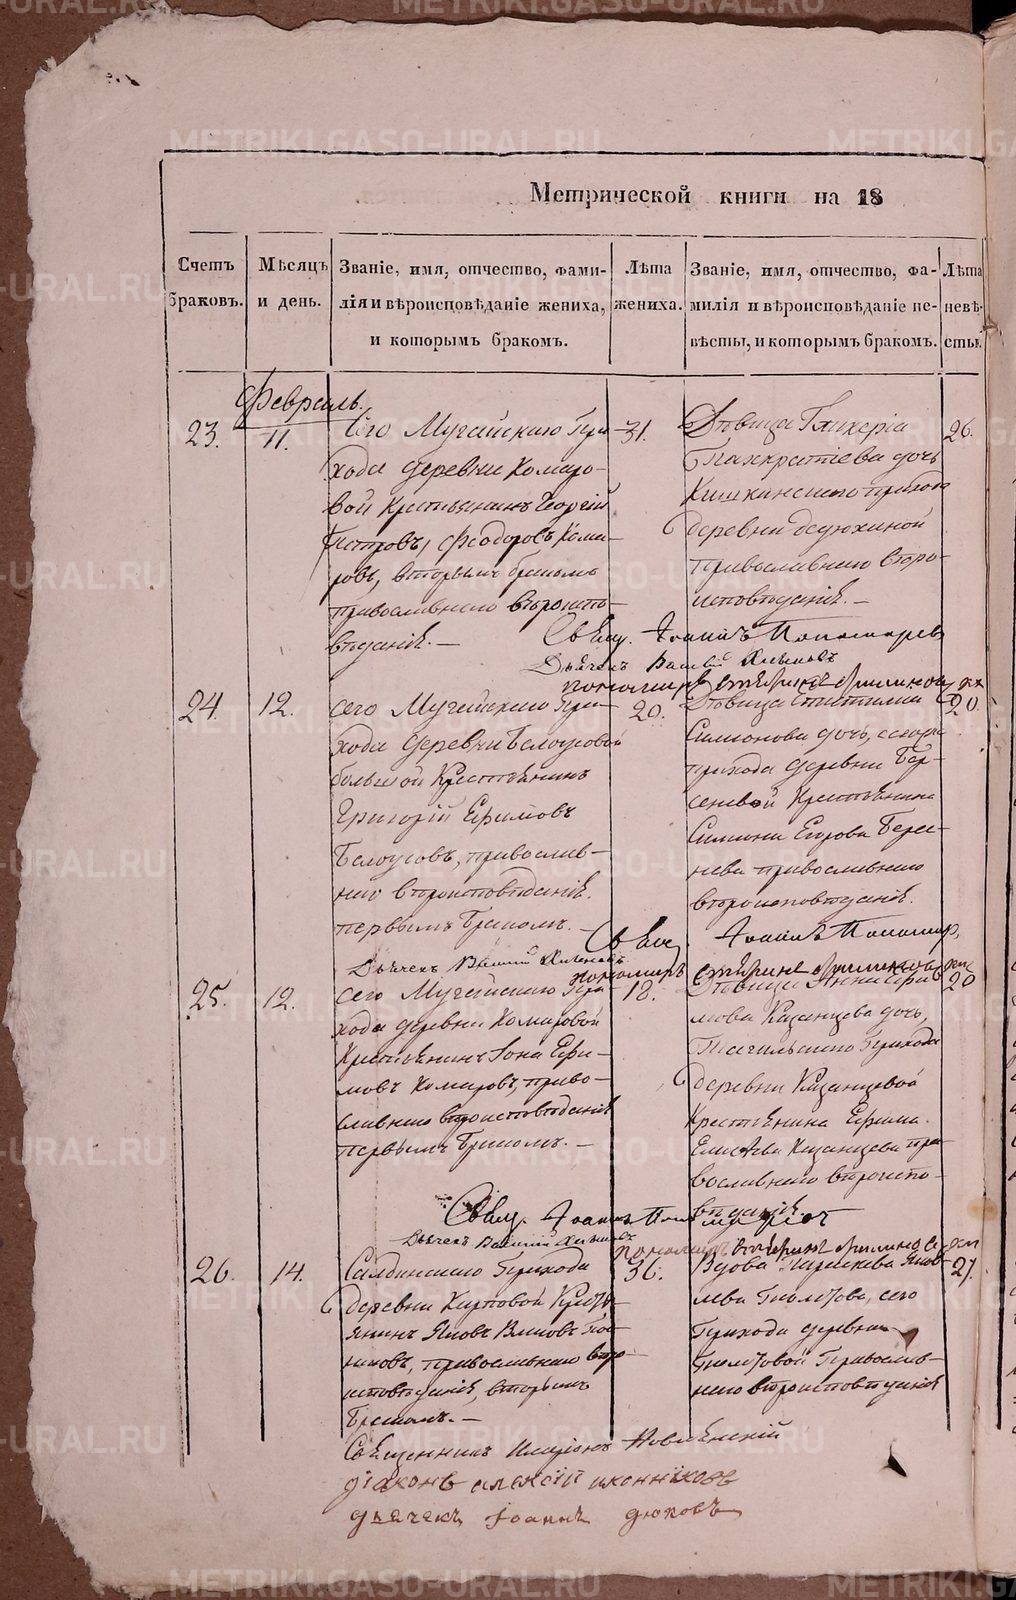 Метрической книги на 18
Счетъ браковъ.
Мѣсяцъ и день.
Званіе, имя, отчество, фами-
лія и вѣроисповѣданіе жениха,
и которымъ бракомъ.
Лѣта жениха.
Званіе, имя, отчество, фа-
милія и вѣроисповѣданіе не-
вѣсты, и которымъ бракомъ.
Лѣта невѣ-
сты.
Февраль.
23.
11.
Сего Мугайскаго При-
хода деревни Комаро-
вой Крестьянинъ Георгій
Петровъ, Феодоровъ Кома-
ровъ, вторымъ бракомъ
православнаго вѣроиспо-
вѣданія. —
31.
Дѣвица Гликерія
Панкратіева дочь
Кишкинскаго прихода
деревни
православнаго вѣро-
исповѣданія. —
26.
Свящ. Іоаннъ Пономаревъ
Дьячекъ Василій Хлыновъ
пономарь
24.
12.
сего Мугайскаго При-
хода деревни Белоусовой
большой Крестьянинъ
Григорій Ефимовъ
Белоусовъ, православ-
наго вѣроисповѣданія.
первымъ бракомъ. —
20.
Дѣвица
Симионова дочь, сегоже
прихода деревни Бер-
сеневой Крестьянина
Симиона Егорова Берсе-
нева православнаго
вѣроисповѣданія.
20
Свящ. Іоаннъ Пономар,
Дьячекъ Василій Хлыновъ
пономарь
25.
12.
сего Мугайскаго При-
хода деревни Комаровой
Крестьянинъ Іона Ефи-
мовъ Комаровъ, право-
славнаго вѣроисповѣданія
первымъ бракомъ. —
18.
Дѣвица Анна Ефи-
мова Казанцева дочь,
Тагильскаго Прихода
деревни Казанцевой
Крестьянина Ефима
Елисѣева Казанцева пра-
вославнаго вѣроиспо-
вѣданія
20
Свящ. Іоаннъ Пономаревъ
Дьячекъ Василій Хлыновъ
пономарь
26.
14.
Салдинскаго Прихода
деревни Карповой Кресть-
янинъ Яковъ
православнаго вѣро-
исповѣданія, вторымъ
бракомъ. —
36.
Вдова Параскева Яков-
лева сего
Прихода деревни
Православ-
наго вѣроисповѣданія
27.
Священникъ Иларіонъ
діаконъ алексій иконниковъ
дьячекъ Іоаннъ дюковъ
METRIKI.GASO-URAL.RU